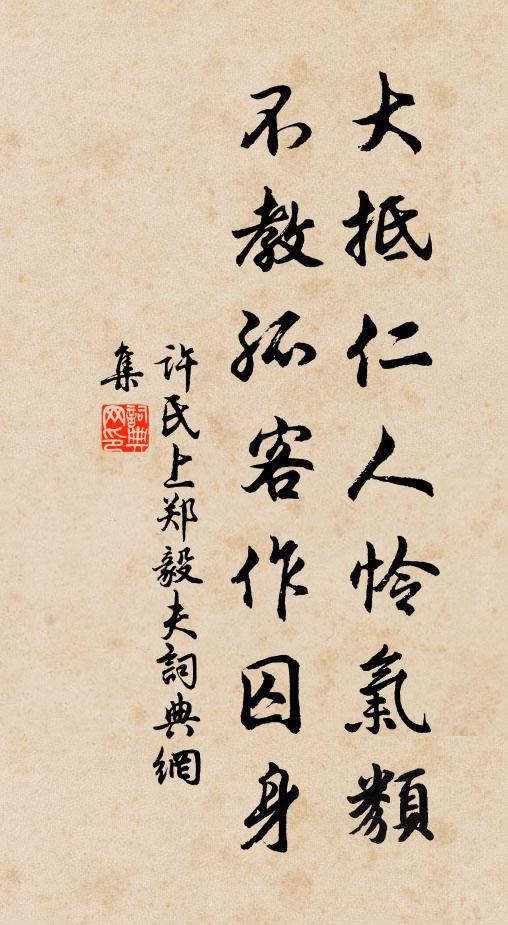 大抵仁人怜氣類
不教孤客作囚身
许氏上郑毅夫詞典網
集
詞典
网印